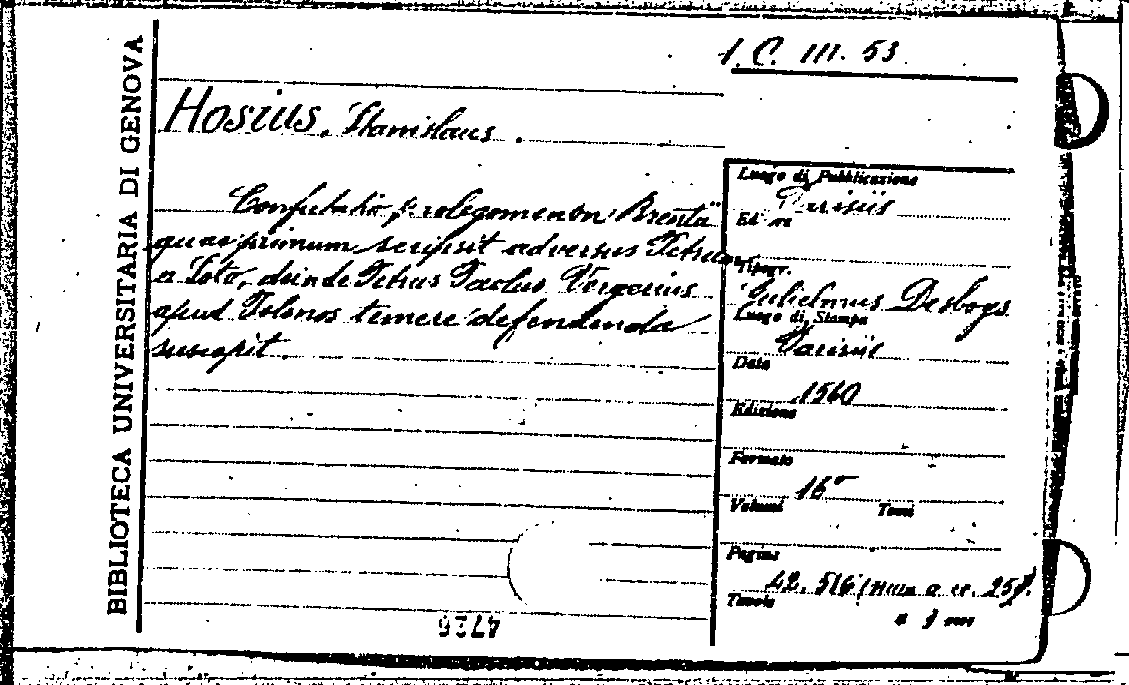 BIBLIOTECA UNIVERSITARIA DI GENOVA
1. C. III. 53
Hosius, Stanislaus.
Confutatio prolegomenon Brentii
quae primum scripsit adversus Petrum
a Soto, deinde Petrus Paulus Vergerius
apud Polonos temere defendenda
suscepit.
Luogo di Pubblicazione
Parisiis
Ed
Tipogr.
Gulielmus Desboys
Luogo di Stampa
Parisiis
Data
1560
Edizione
Formato
16º
Volumi Tomi
Pagine
42. 516 (num a cc. 258.
Tavole
4726